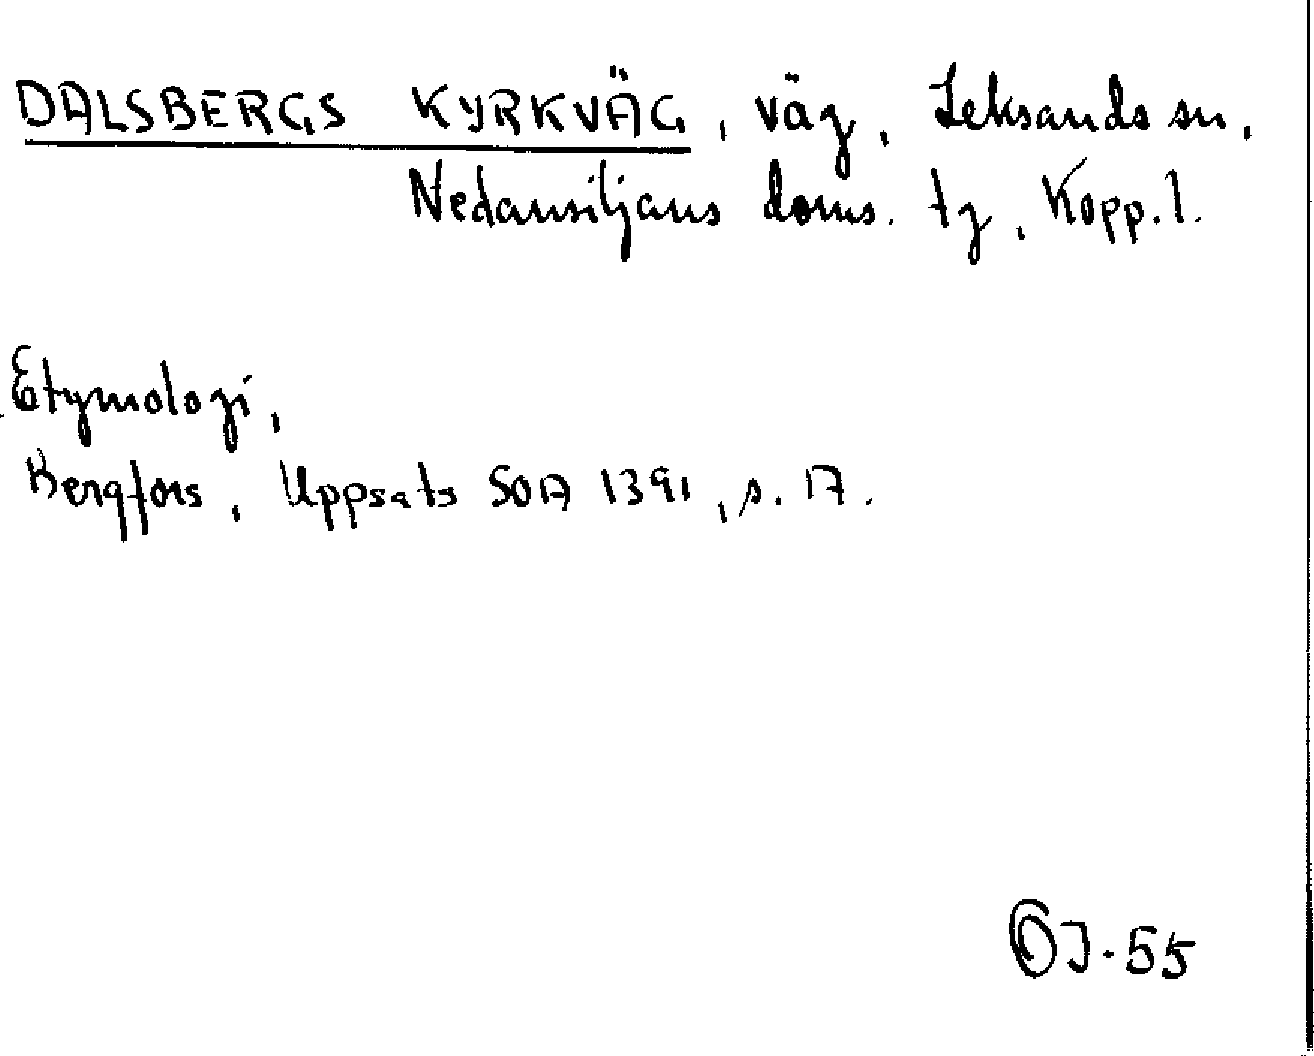 DALSBERGS KYRKVÄG, väg, Leksands sn,
Nedansiljans doms. tg, Kopp. l.
Etymologi,
Bergfors, Uppsats SOA 1391, s. 17.
OJ-55